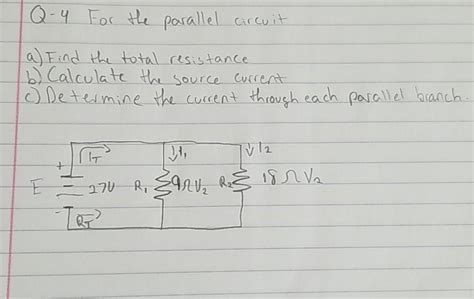 Q-4 For the parallel circuit
a) Find the total resistance
b) Calculate the source current
c) Determine the current through each parallel branch.
+ IT ↓I1 ↓I2
E 27V R1 9Ω V2 R2 18Ω V2
- RT